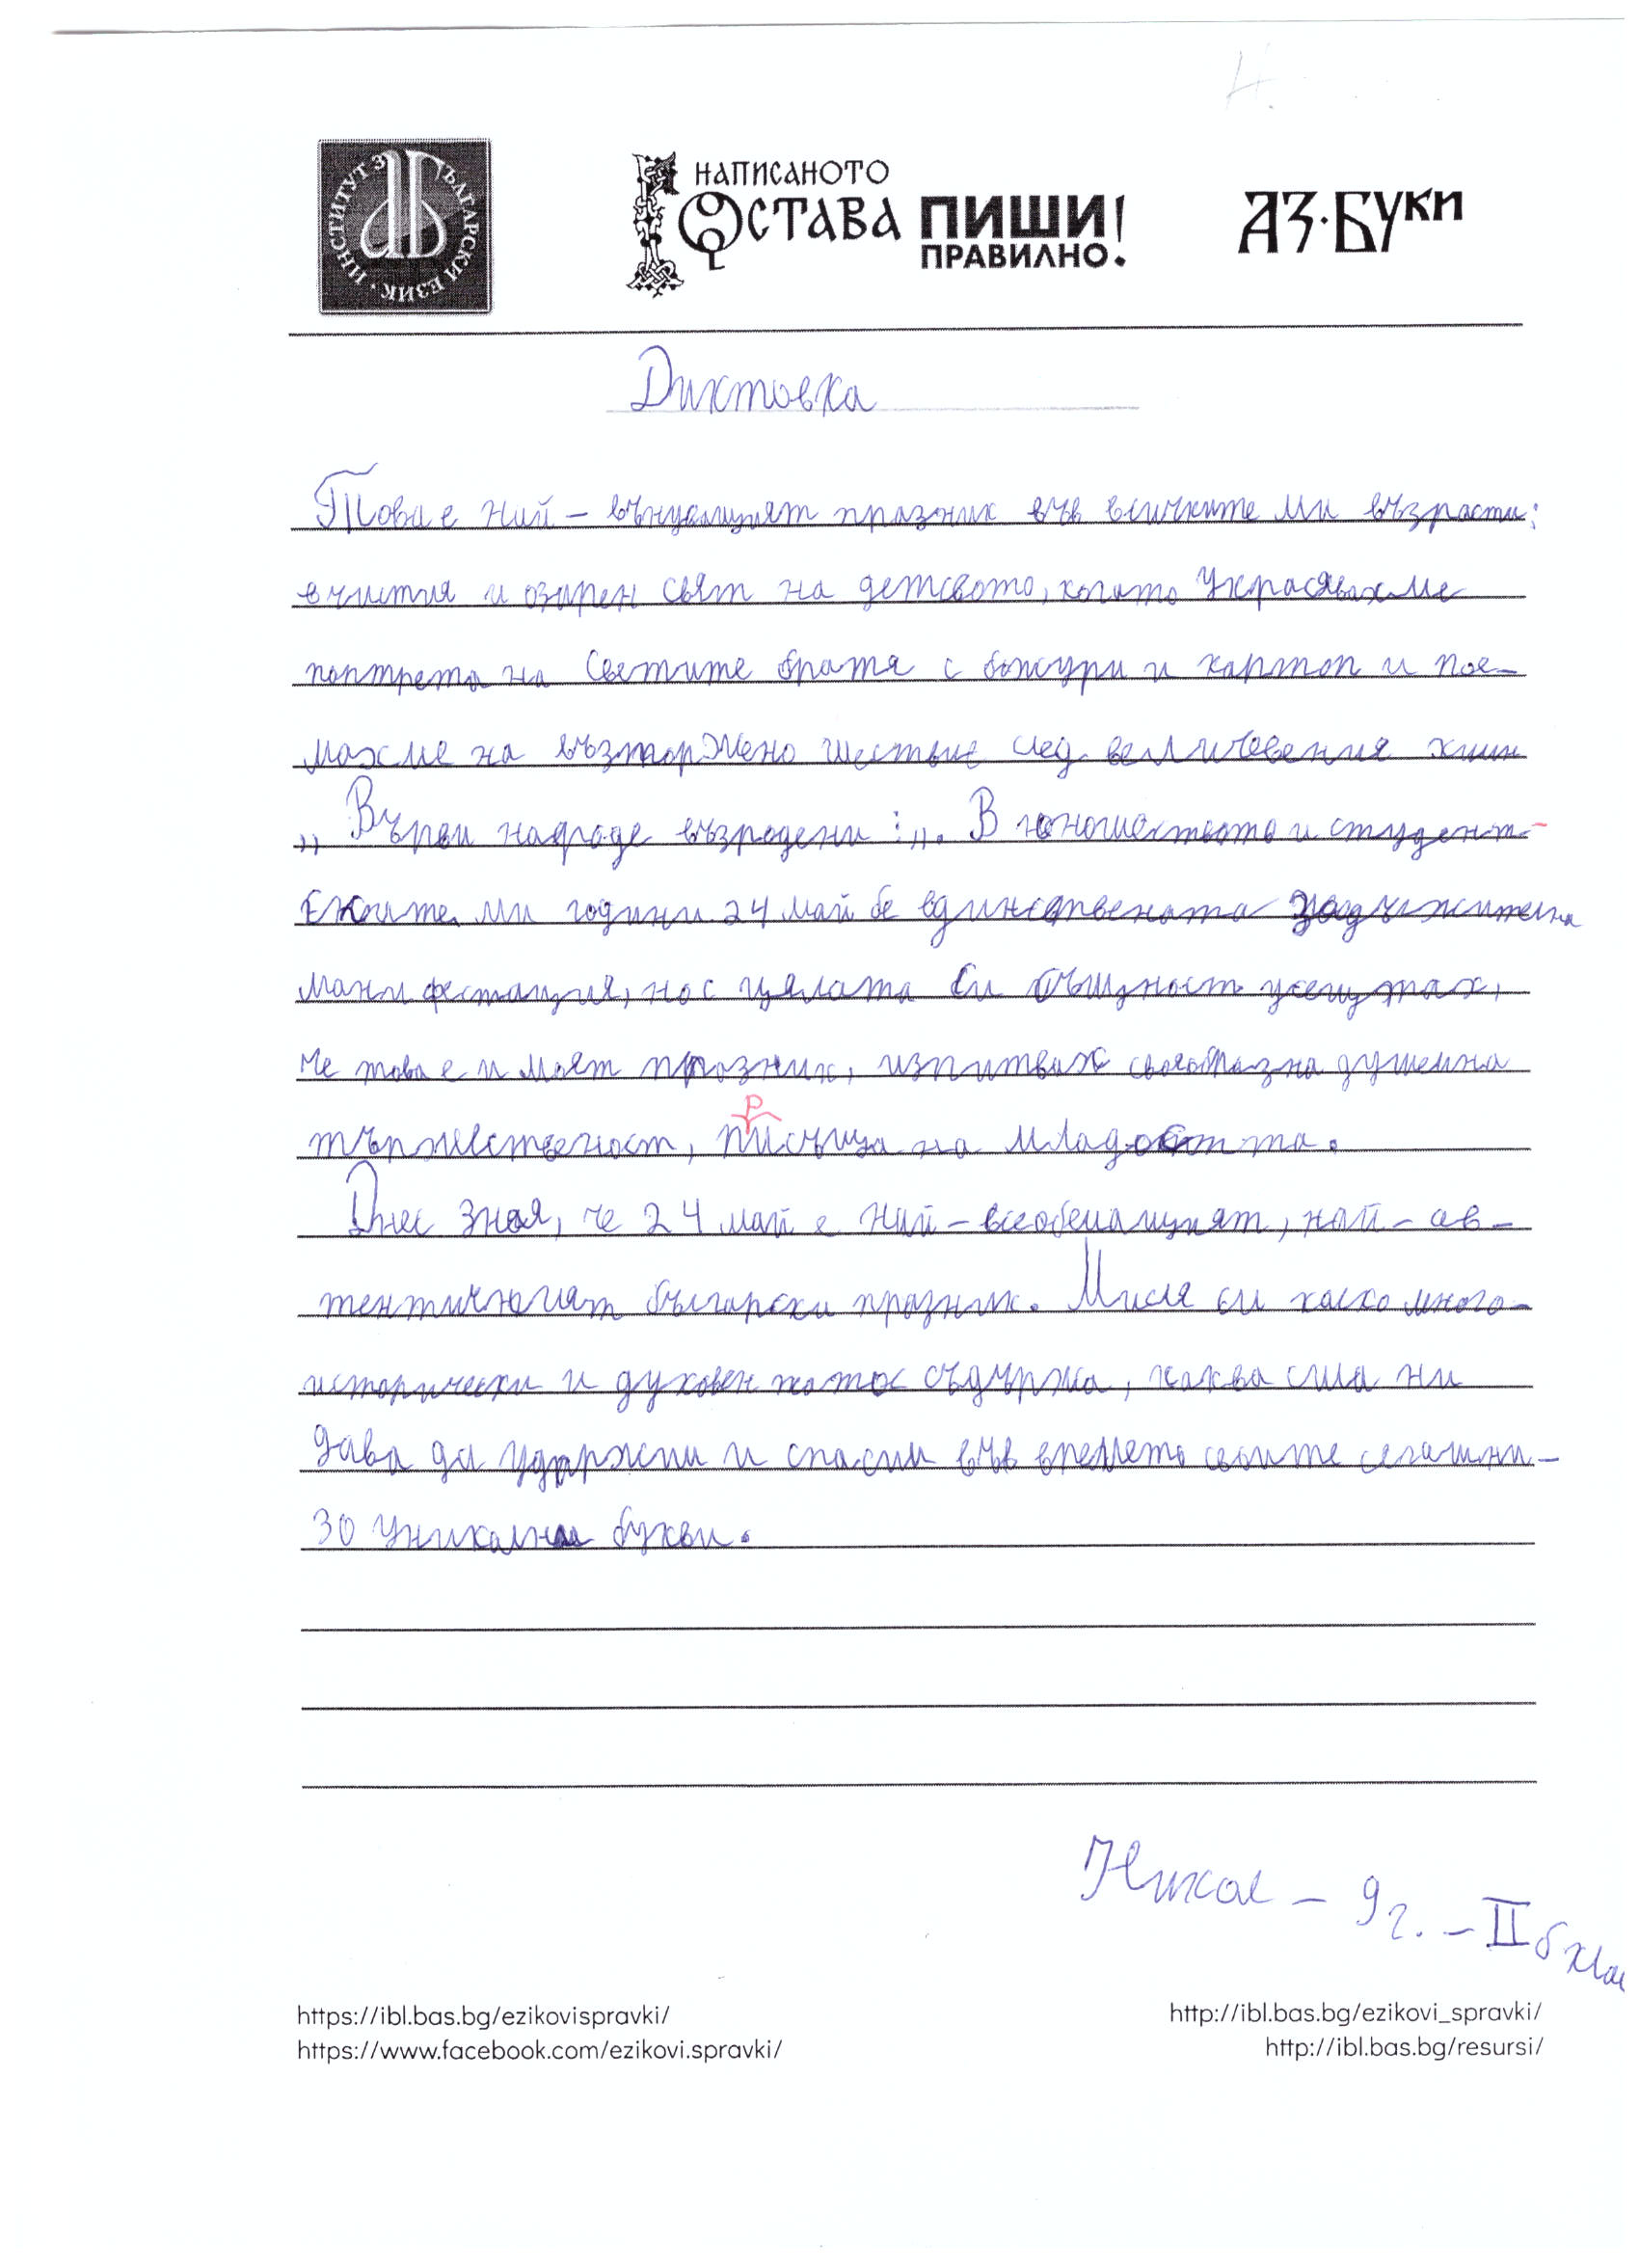 ИНСТИТУТ ЗА БЪЛГАРСКИ ЕЗИК
НАПИСАНОТО
ОСТАВА ПИШИ!
ПРАВИЛНО.
АЗ·БУКИ
Диктовка
Това е най-вънуващият празник във всичките ми възрасти:
в чистия и озарен свят на детсвото, когато украсявахме
поптрета на Светите братя с божури и картоп и пое-
махме на възторжено шествие след величевения химн
„Върви народе възродени:„. В юношеството и студент-
ските ми години 24 май бе единствената задължителна
манифестация, но с цялата си същност усещтах,
че това е и моят празник, изпитвах своеобразна душевна
тържественост, присъща на младостта.
Днес зная, че 24 май е най-всеобещащият, най-ав-
тентичният български празник. Мисля си каско много-
исторически и духовен патос съдържа, каква сила ни
дава да удържим и спасим във времето своите сегашни-
30 уникални букви.
Никол - 9 г. - II б клас
https://ibl.bas.bg/ezikovispravki/
http://ibl.bas.bg/ezikovi_spravki/
https://www.facebook.com/ezikovi.spravki/
http://ibl.bas.bg/resursi/